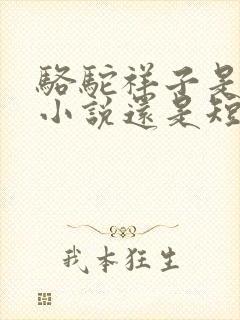 駱駝祥子是
小說還是短
我本狂生